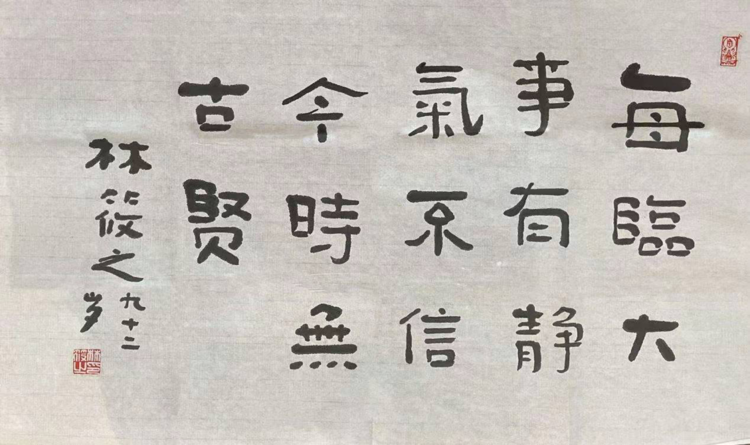 每臨大
事有静
氣不信
今時無
古賢
林筱之
九十二
岁